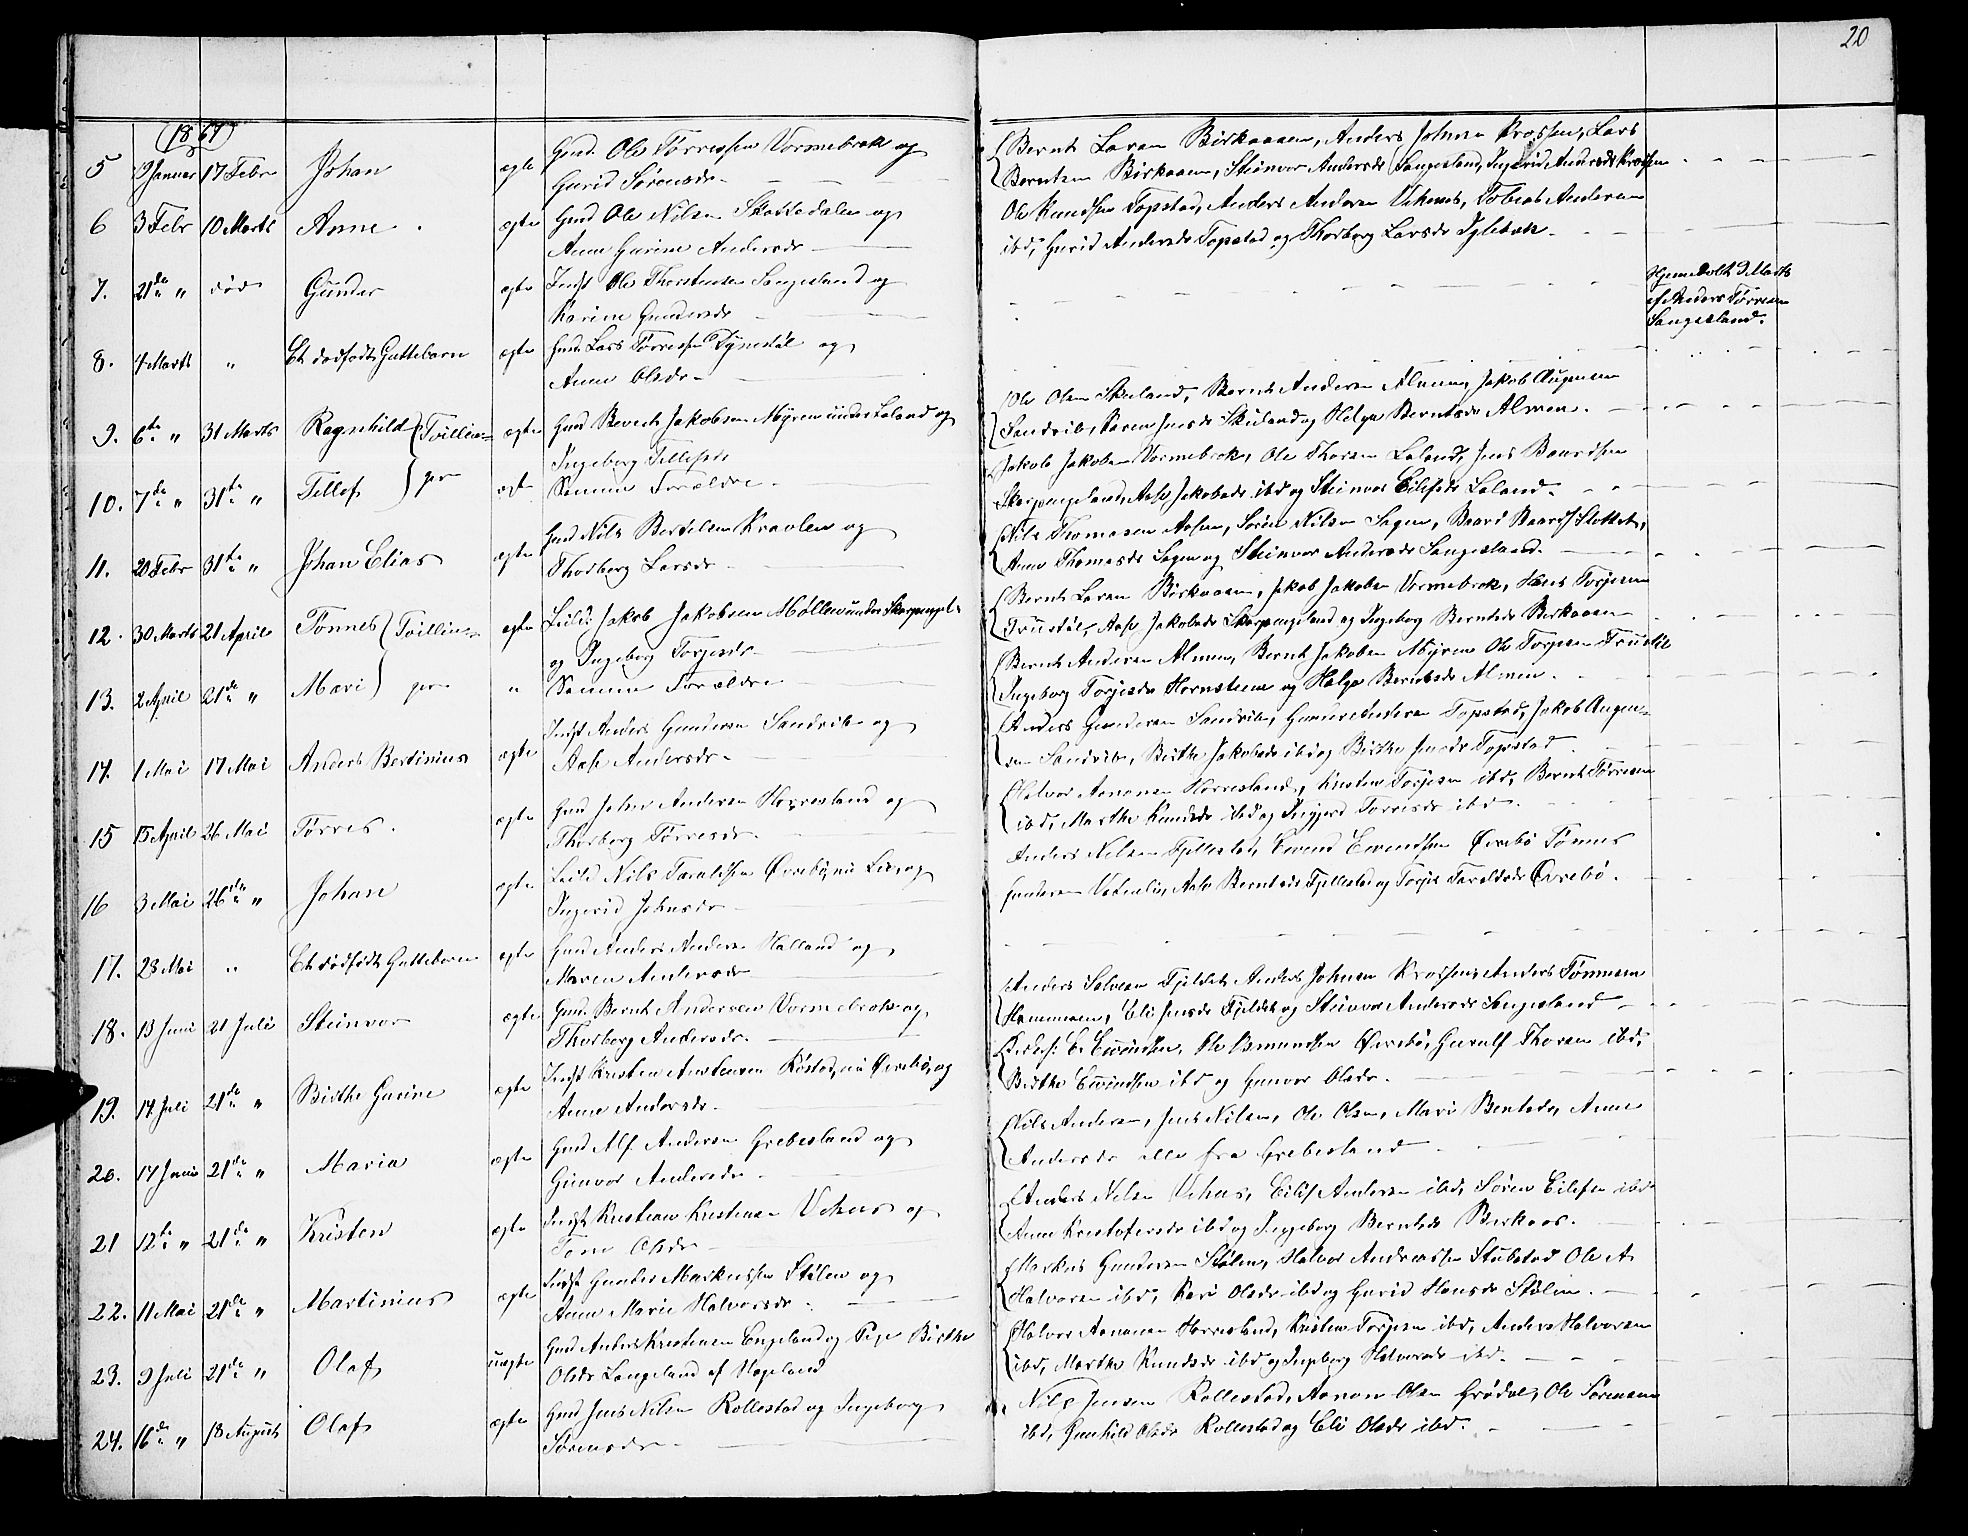 20
(1867)
5 19 Januar 17 Febr Johan ægte Gmd. Ole Tørressen Vormebrok og
Gurid Sørensdr.
Bernt Larsen Birkaaen, Anders Johnsen Krossen, Lars
Berntsen Birkaaen, Steinvor Andersdr Langesland, Ingerid Andersdr Krossen
6 3 Febr 10 Marts Anne ægte Gmd Ole Nilsen Skattedalen og
Anne Gurine Andersdr
Ole Knudsen Topstad, Anders Andersen Vehus, Tobias Andersen
ibd, Gurid Andersdr Topstad og Thorborg Larsdr
7. 21de " død Gunder ægte Indst Ole Thorstensen Langesland og
Karine Gundersdr
Hjemedøbt 3 Marts
af Anders Tørresen
Langesland.
8. 4 Marts " Et dødfødt Guttebarn ægte Gmd. Lars Tørressen Dynestøl og
Anne Olsdr
9. 6te " 31 Marts Ragnhild (Tvillin- ægte Gmd Berent Jakobsen Myren under Løland og
Ingeborg Tellefsdr
Ole Olsen Skuland, Bernt Andersen Almen, Jakob Augensen
Sandvik, Karen Jensdr Skuland og Helga Berntsdr Almen.
10. 7de " 31te " Tellef ) ger ægt Samme Forældre.
Jakob Jakobsen Vormebrok, Ole Thorsen Løland, Jens Baardsen
Skarpengland, Aase Jakobsdr ibd og Steinvor Eilefsdr Løland.
11. 20 Febr 31te " Johan Elias ægte Gmd Nils Bertelsen Kraalen og
Thorborg Larsdr
Nils Thomassen Aasen, Søren Nilsen Sagen, Baard Baards Slottet,
Anne Thomasdr Sagen og Steinvor Andersdr Langesland.
12. 30 Marts 21 April Tønnes (Tvillin- ægte Leild: Jakob Jakobsen Møllen under Skarpengl.
og Ingeborg Torjesdr
Bernt Larsen Birkaaen, Jakob Jakobsen Vormebrok, Hans Torjesen
Truestøl, Aase Jakobsdr Skarpengland og Ingeborg Berntsdr Birkaaen
13. 2 April 21de " Mari ) ger " Samme Forældre
Bernt Andersen Almen, Bernt Jakobsen Myren Ole Torjesen Truestøl
Ingeborg Torjesdr Hornsteen og Helga Berntsdr Almen.
14. 1 Mai 17 Mai Anders Bertinius ægte Indst Anders Gundersen Sandvik og
Aase Andersdr
Anders Gundersen Sandvik, Gunder Andersen Topstad, Jakob Augen-
sen Sandvik, Birthe Jakobsdr ibd og Birthe Jensdr Topstad.
15 15 April 26 Mai Tørres. ægte Gmd John Andersen Horresland og
Thorborg Tørresdr.
Halvor Aanonsen Horresland, Kristen Torjesen ibd, Bernt Tørresen
ibd, Marthe Knudsdr ibd og Tørresdr ibd.
16 3 Mai 26de " Johan ægte Leild Nils Taraldsen Øvrebø, nu Lie, og
Ingerid Johnsdr
Anders Nilsen Fjellestad, Eivend Eivendsen Øvrebø Tønnes
Gundersen, Aase Berntsdr Fjellestad og Torjer Taraldsdr Øvrebø.
17. 23 Mai " Et dødfødt Guttebarn ægte Gmd Anders Andersen Halland og
Maren Andersdr
18. 13 Juni 21 Juli Steinvor ægte Gmd. Bernt Andersen Vormebrok og
Thorborg Andersdr.
Anders Salvesen Fjeldet, Anders Johnsen Krossen, Anders Tønnesen
Hommeren, Eli Jensdr Fjeldet og Steinvor Andersdr Langesland
19. 14 Juli 21de " Birthe Gurine ægte Indst Kristen Aanensen Røstad, nu Øvrebø, og
Anne Andersdr.
E. Eivindsen, Ole Asmundsen Øvrebø, Gunulf Thorsen ibd,
Birthe Eivindsen ibd og Gunvor Olsdr.
20. 17 Juni 21de " Maria ægte Gmd Alf. Andersen Grebesland og
Gunvor Andersdr
Nils Andersen, Jens Nilsen, Ole Olsen, Mari Berntsdr, Anne
Andersdr alle fra Grebesland
21 12te " 21de " Kristen ægte Indst Kristian Kristensen Vehus og
Tone Olsdr
Anders Nilsen Vehus, Eilef Andersen ibd, Søren Eilefsen ibd
Anne Kristofersdr ibd og Ingeborg Berntsdr Birkaas.
22. 11 Mai 21de " Martinius ægte Indst Gunder Markussen Stølen og
Anne Marie Halvorsdr.
Markus Gundersen Stølen, Halvor Andreassen Stubstad Ole A
Halvorsen ibd, Kari Olsdr ibd og Gurid Hansdr Stølen.
23. 9 Juli 21de " Olaf uægte Gmd Anders Kristensen Engeland og Pige Birthe
Olsdr Langeland af Hægeland
Halvor Aanonsen Horresland, Kristen Torjesen ibd, Anders Halvorsen
ibd, Marthe Knudsdr ibd og Ingeborg Halvorsdr ibd.
24. 16de " 18 August Olaf ægte Gmd Jens Nilsen Rollestad og Ingeborg
Sørensdr.
Nils Jensen Rollestad, Aanon Olsen Grødal, Ole Sørensen
ibd, Gunhild Olsdr Rollestad og Eli Olsdr ibd.